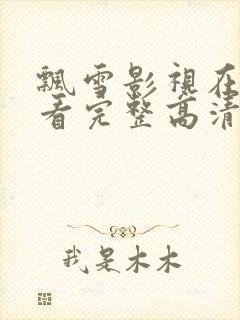 飄雪影視在
看完整高清
我是木木